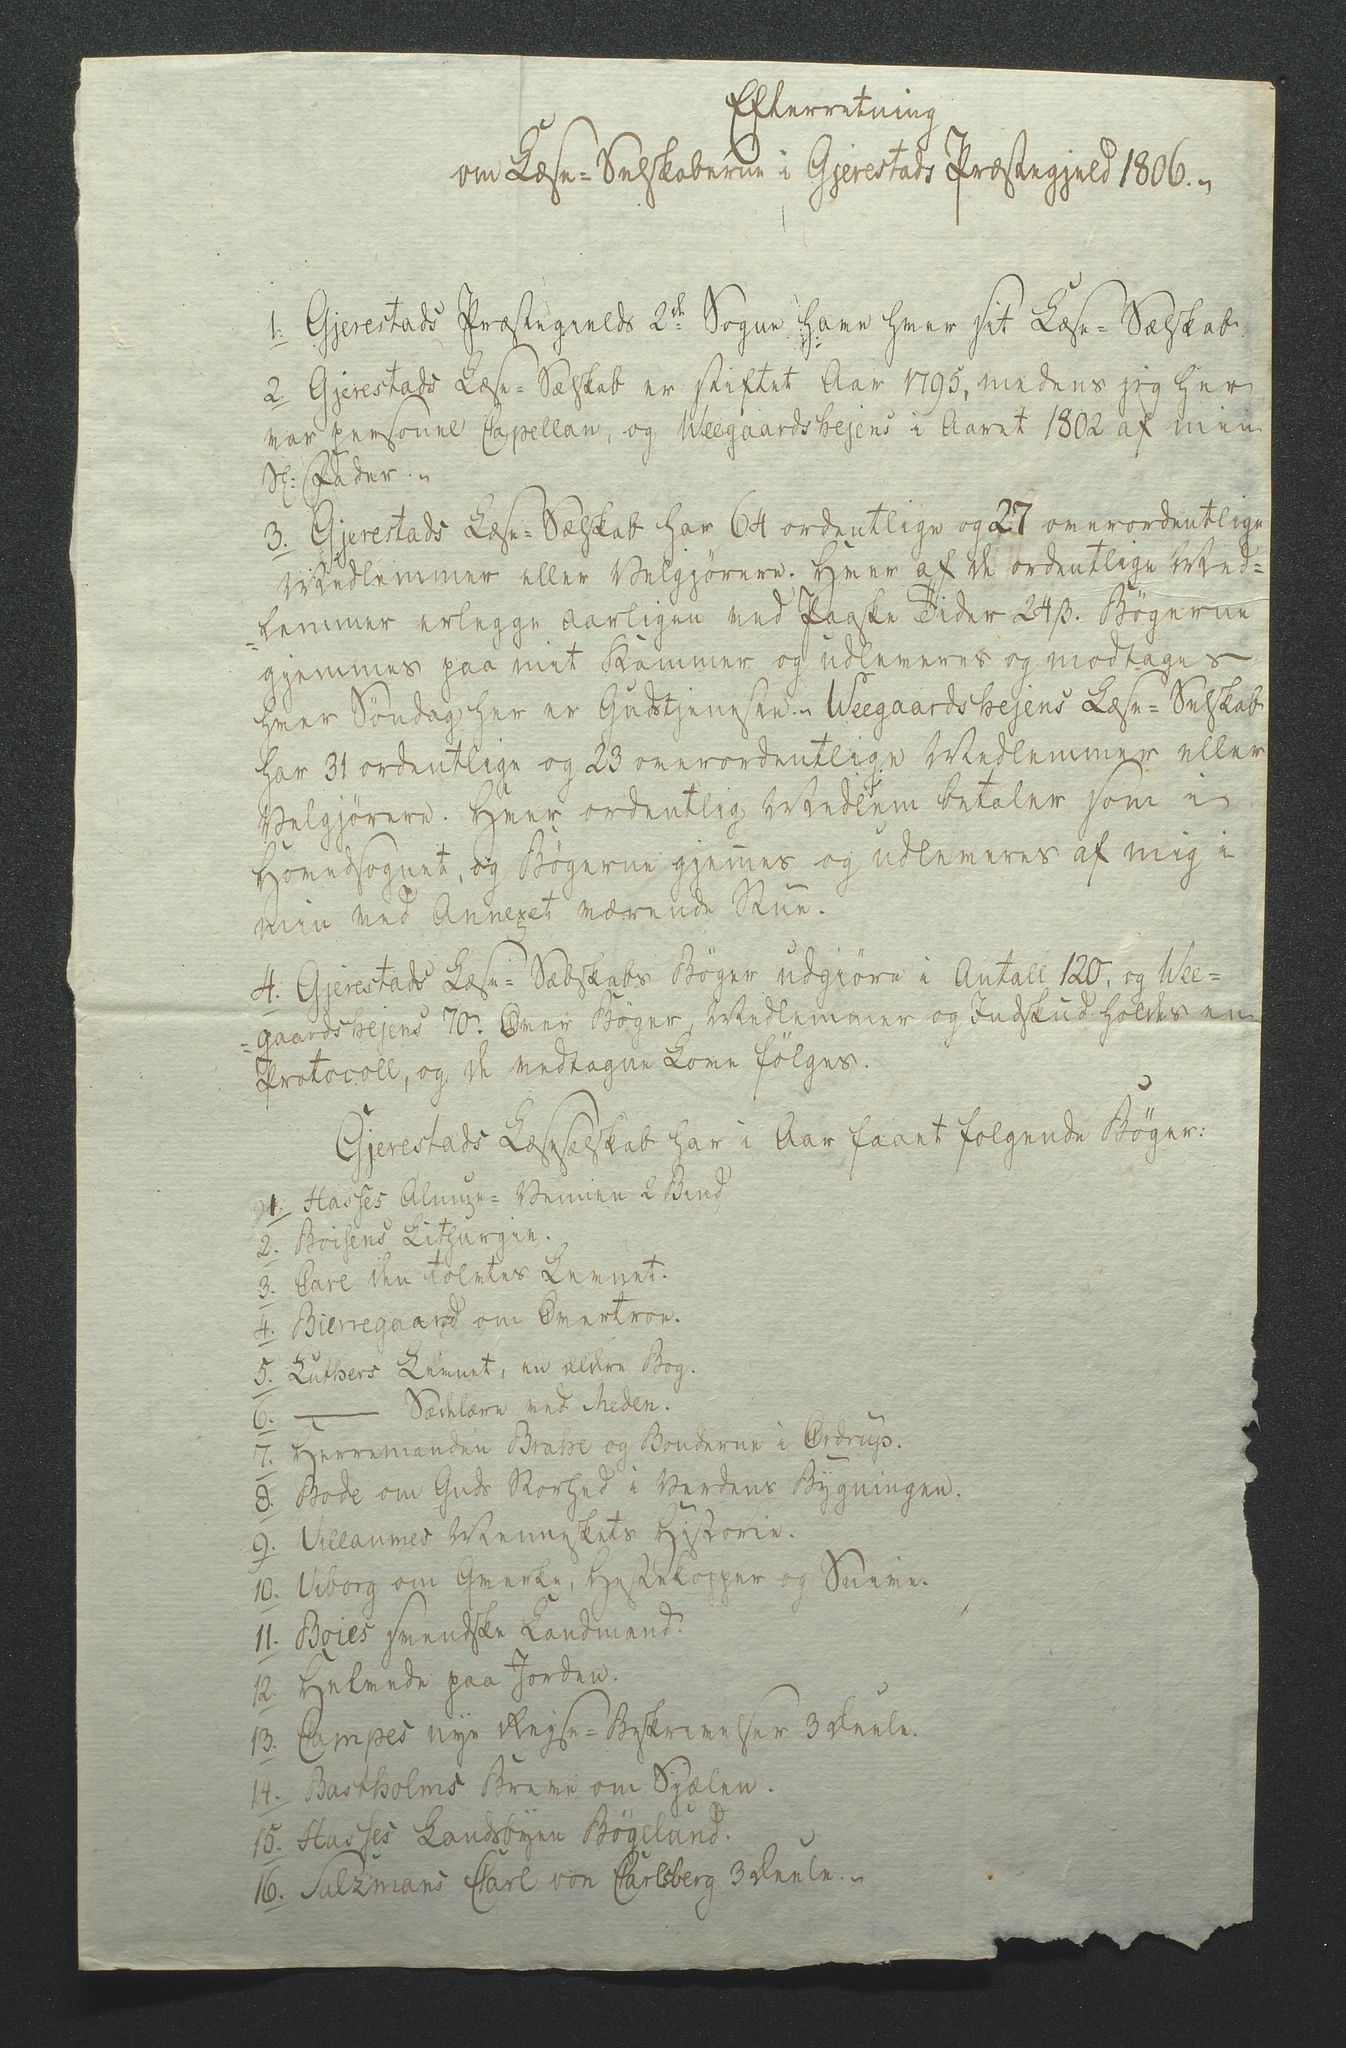 Efterretning
om Læse=Selskaberne i Gjerestads Præstegjeld 1806.
1. Gjerestads Præstegields 2de Sogne have hver sit Læse=Sælskab.
2. Gjerestads Læse=Sælskab er stiftet Aar 1795, medens jeg her
var personel Capellan, og Weegaardsheiens i Aaret 1802 af min
Sl: Fader.
3. Gjerestads Læse=Sælskab har 64 ordentlige og 27 overordentlige
Medlemmer eller Velgjörere. Hver af de ordentlige Med=
=lemmer erlegge aarligen ved Paaske Tider 24 β. Bögerne
gjemmes paa mit Kammer og udleveres og modtages
hver Söndag her er Gudstjeneste. Weegaardshejens Læse=Selskab
har 31 ordentlige og 23 overordentlige Medlemmer eller
Velgjörere. Hver ordentlig Medlem betaler som i
Hovedsognet, og Bögerne gjem̅es og udleveres af mig i
min ved Annexet værende Stue.
4. Gjerestads Læse=Sælskabs Böger udgiöre i Antall 120, og Wee=
=gaardshejens 70. Over Böger, Medlemmer og Indskud holdes en
Protocoll, og de vedtagne Love fölges.
Gjerestads Læseselskab har i Aar faaet folgende Böger:
1. Hasses Almue=Vennen 2 Bind
2. Boisens Lithurgie.
3. Carl den tolvtes Levnet.
4. Bierregaard om Overtroe.
5. Luthers Levnet, en ældre Bog.
6. ——— Sædelære ved Meden.
7. Herremanden Brahe og Bonderne i Ordrup.
8. Bode om Guds Storhed i Verdens Bygningen.
9. Villaumes Menneskets Historie.
10. Viborg om Qverke, Hestekopper og Snive.
11. Boies svendske Landmand.
12. Helvede paa Jorden.
13. Campes nye Reyse=Beskrivelser 3 Deele.
14. Bastholms Breve om Sjælen.
15. Hasses Landsbyen Bögelund.
16. Salzmans Carl von Carlsberg 3 Deele.